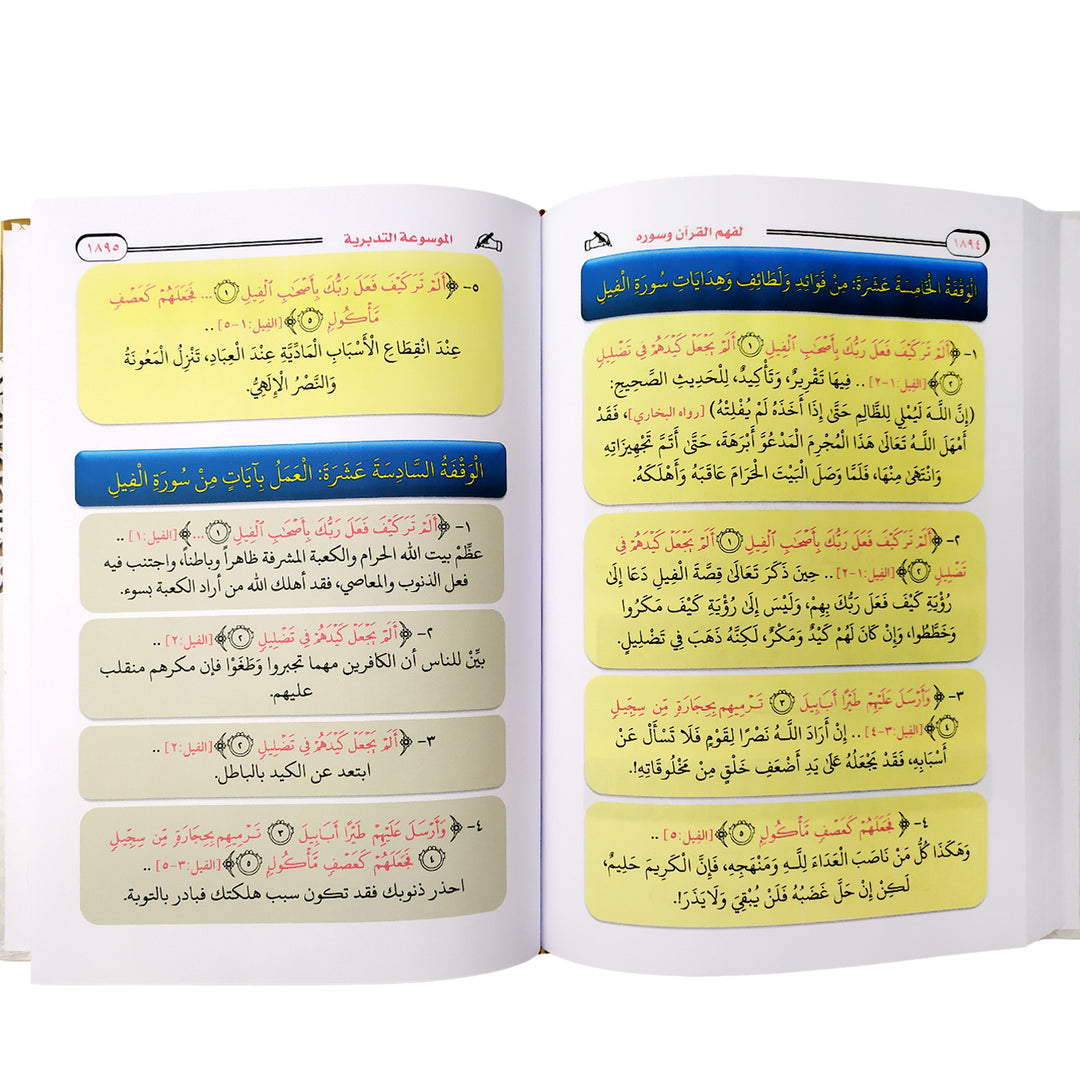 ١٨٩٤
لفهم القرآن وسوره
الْوَقْفَةُ الْخَامِسَةَ عَشَرَةَ: مِنْ فَوَائِدِ وَلَطَائِفِ وَهِدَايَاتِ سُورَةِ الْفِيلِ
١- ﴿أَلَمْ تَرَ كَيْفَ فَعَلَ رَبُّكَ بِأَصْحَٰبِ ٱلْفِيلِ ۝١ أَلَمْ يَجْعَلْ كَيْدَهُمْ فِي تَضْلِيلٍ
۝٢﴾ [الفِيل:١-٢] .. فِيهَا تَقْرِيرٌ، وَتَأْكِيدٌ، لِلْحَدِيثِ الصَّحِيحِ:
(إِنَّ اللَّـهَ لَيُمْلِي لِلظَّالِمِ حَتَّىٰ إِذَا أَخَذَهُ لَمْ يُفْلِتْهُ) [رواه البخاري]، فَقَدْ
أَمْهَلَ اللَّـهُ تَعَالَىٰ هَذَا الْمُجْرِمَ الْمَدْعُوَّ أَبْرَهَةَ، حَتَّىٰ أَتَمَّ تَجْهِيزَاتِهِ
وَانْتَهَىٰ مِنْهَا، فَلَمَّا وَصَلَ الْبَيْتَ الْحَرَامَ عَاقَبَهُ وَأَهْلَكَهُ.
٢- ﴿أَلَمْ تَرَ كَيْفَ فَعَلَ رَبُّكَ بِأَصْحَٰبِ ٱلْفِيلِ ۝١ أَلَمْ يَجْعَلْ كَيْدَهُمْ فِي
تَضْلِيلٍ ۝٢﴾ [الفِيل:١-٢] .. حِينَ ذَكَرَ تَعَالَىٰ قِصَّةَ الْفِيلِ دَعَا إِلَىٰ
رُؤْيَةِ كَيْفَ فَعَلَ رَبُّكَ بِهِمْ، وَلَيْسَ إِلَىٰ رُؤْيَةِ كَيْفَ مَكَرُوا
وَخَطَّطُوا، وَإِنْ كَانَ لَهُمْ كَيْدٌ وَمَكْرٌ، لَكِنَّهُ ذَهَبَ فِي تَضْلِيلٍ.
٣- ﴿وَأَرْسَلَ عَلَيْهِمْ طَيْرًا أَبَابِيلَ ۝٣ تَرْمِيهِم بِحِجَارَةٍ مِّن سِجِّيلٍ
۝٤﴾ [الفِيل:٣-٤] .. إِنْ أَرَادَ اللَّـهُ نَصْرًا لِقَوْمٍ فَلَا تَسْأَلْ عَنْ
أَسْبَابِهِ، فَقَدْ يَجْعَلُهُ عَلَىٰ يَدِ أَضْعَفِ خَلْقٍ مِنْ مَخْلُوقَاتِهِ!.
٤- ﴿فَجَعَلَهُمْ كَعَصْفٍ مَّأْكُولٍ ۝٥﴾ [الفِيل:٥] ..
وَهَكَذَا كُلُّ مَنْ نَاصَبَ الْعَدَاءَ لِلَّـهِ وَمَنْهَجِهِ، فَإِنَّ الْكَرِيمَ حَلِيمٌ،
لَكِنْ إِنْ حَلَّ غَضَبُهُ فَلَنْ يُبْقِيَ وَلَا يَذَرَ!.
الموسوعة التدبرية
١٨٩٥
٥- ﴿أَلَمْ تَرَ كَيْفَ فَعَلَ رَبُّكَ بِأَصْحَٰبِ ٱلْفِيلِ ۝١ ... فَجَعَلَهُمْ كَعَصْفٍ
مَّأْكُولٍ ۝٥﴾ [الفِيل:١-٥] ..
عِنْدَ انْقِطَاعِ الْأَسْبَابِ الْمَادِّيَّةِ عِنْدَ الْعِبَادِ، تَنْزِلُ الْمَعُونَةُ
وَالنَّصْرُ الْإِلَهِيُّ.
الْوَقْفَةُ السَّادِسَةَ عَشَرَةَ: الْعَمَلُ بِآيَاتٍ مِنْ سُورَةِ الْفِيلِ
١- ﴿أَلَمْ تَرَ كَيْفَ فَعَلَ رَبُّكَ بِأَصْحَٰبِ ٱلْفِيلِ ۝١ ...﴾ [الفيل:١] ..
عظِّمْ بيت الله الحرام والكعبة المشرفة ظاهراً وباطناً، واجتنب فيه
فعل الذنوب والمعاصي، فقد أهلك الله من أراد الكعبة بسوء.
٢- ﴿أَلَمْ يَجْعَلْ كَيْدَهُمْ فِي تَضْلِيلٍ ۝٢﴾ [الفيل:٢] ..
بيِّنْ للناس أن الكافرين مهما تجبروا وَطَغَوْا فإن مكرهم منقلب
عليهم.
٣- ﴿أَلَمْ يَجْعَلْ كَيْدَهُمْ فِي تَضْلِيلٍ ۝٢﴾ [الفيل:٢] ..
ابتعد عن الكيد بالباطل.
٤- ﴿وَأَرْسَلَ عَلَيْهِمْ طَيْرًا أَبَابِيلَ ۝٣ تَرْمِيهِم بِحِجَارَةٍ مِّن سِجِّيلٍ
۝٤ فَجَعَلَهُمْ كَعَصْفٍ مَّأْكُولٍ ۝٥﴾ [الفيل:٣-٥] ..
احذر ذنوبك فقد تكون سبب هلكتك فبادر بالتوبة.